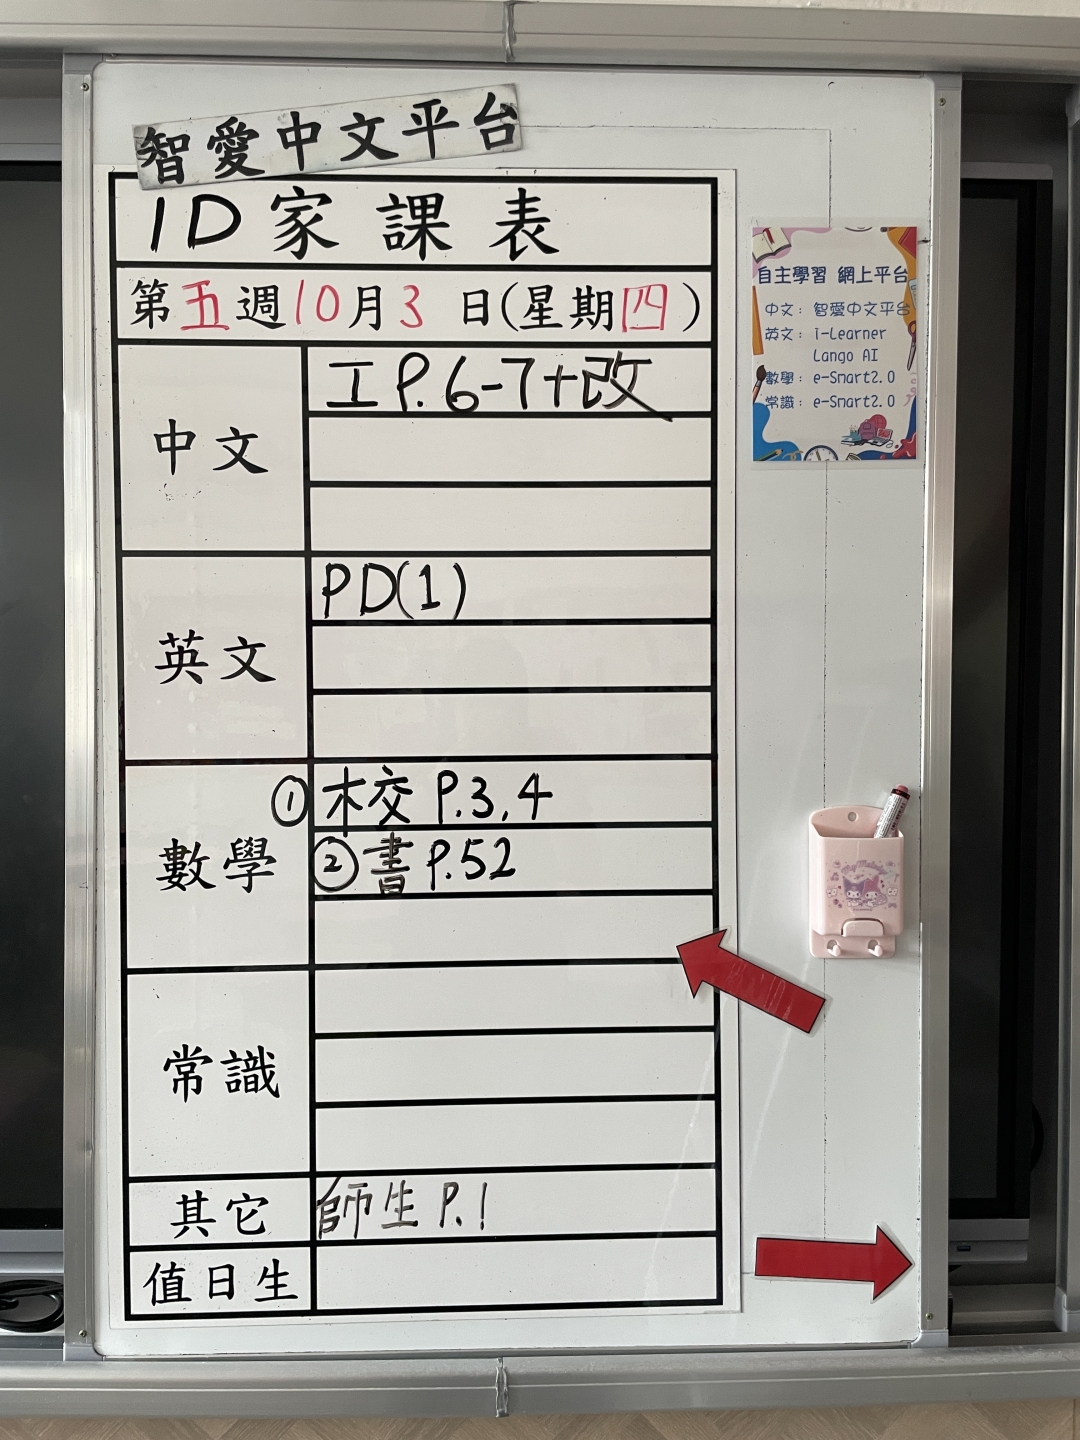 智愛中文平台
1D家課表
第五週10月3日(星期四)
中文
工P.6-7+改
英文
PD(1)
數學
①校P.3,4
②書P.52
常識
其它
師生P.1
值日生
自主學習 網上平台
中文：智愛中文平台
英文：i-Learner
Lango AI
數學：e-Smart2.0
常識：e-Smart2.0